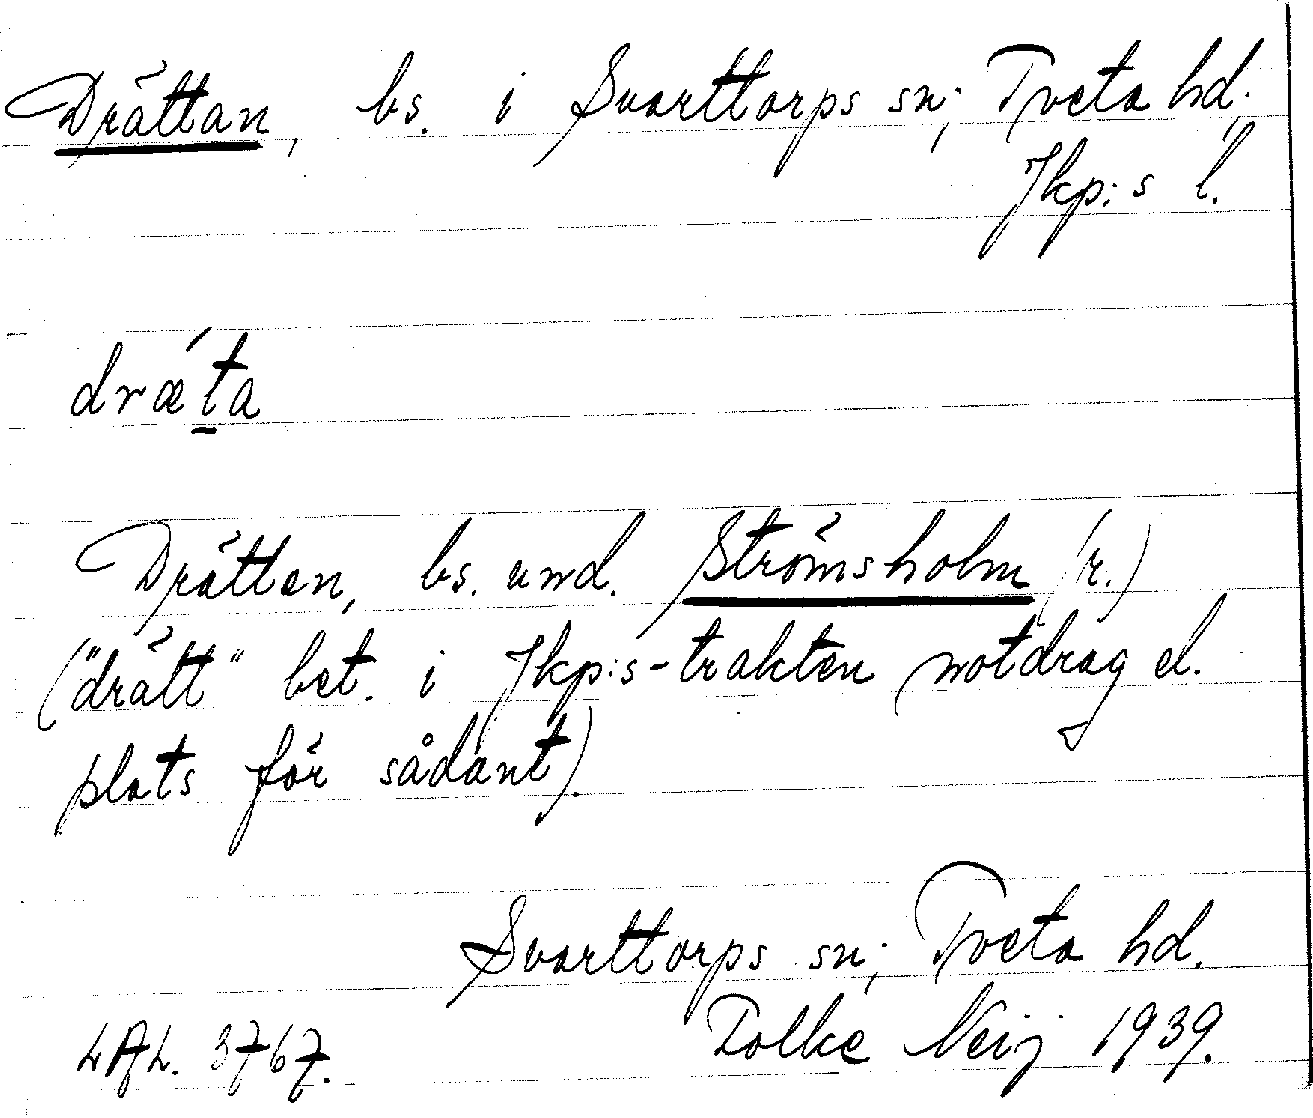 Drättan, bs. i Svarttorps sn; Tveta hd.
Jkp:s l.
dræ´ta
Drätten, bs. und. Strömsholm (r.)
("drätt" bet. i Jkp:s-trakten notdrag el.
plats för sådant).
Svarttorps sn; Tveta hd.
LAL. 3767. Tolke Neij 1939.